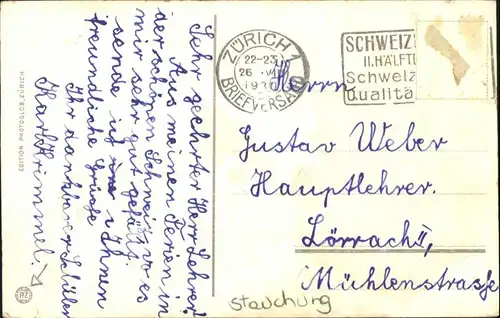 Sehr geehrter Herr Lehrer!
Aus meinen Ferien in
der schönen Schweiz, wo es
mir sehr gut gefällt,
sende ich Ihnen
freundliche Grüsse
Ihr dankbarer Schüler
Karl Himmel.
EDITION PHOTOGLOB, ZÜRICH
PZ
ZÜRICH 1
22-23
26. VIII
BRIEFVERSAND
SCHWEIZ
II. HÄLFT
Schweiz
Qualitä
Herrn
Gustav Weber
Hauptlehrer.
Lörrach II,
Mühlenstrasse
Stauchung